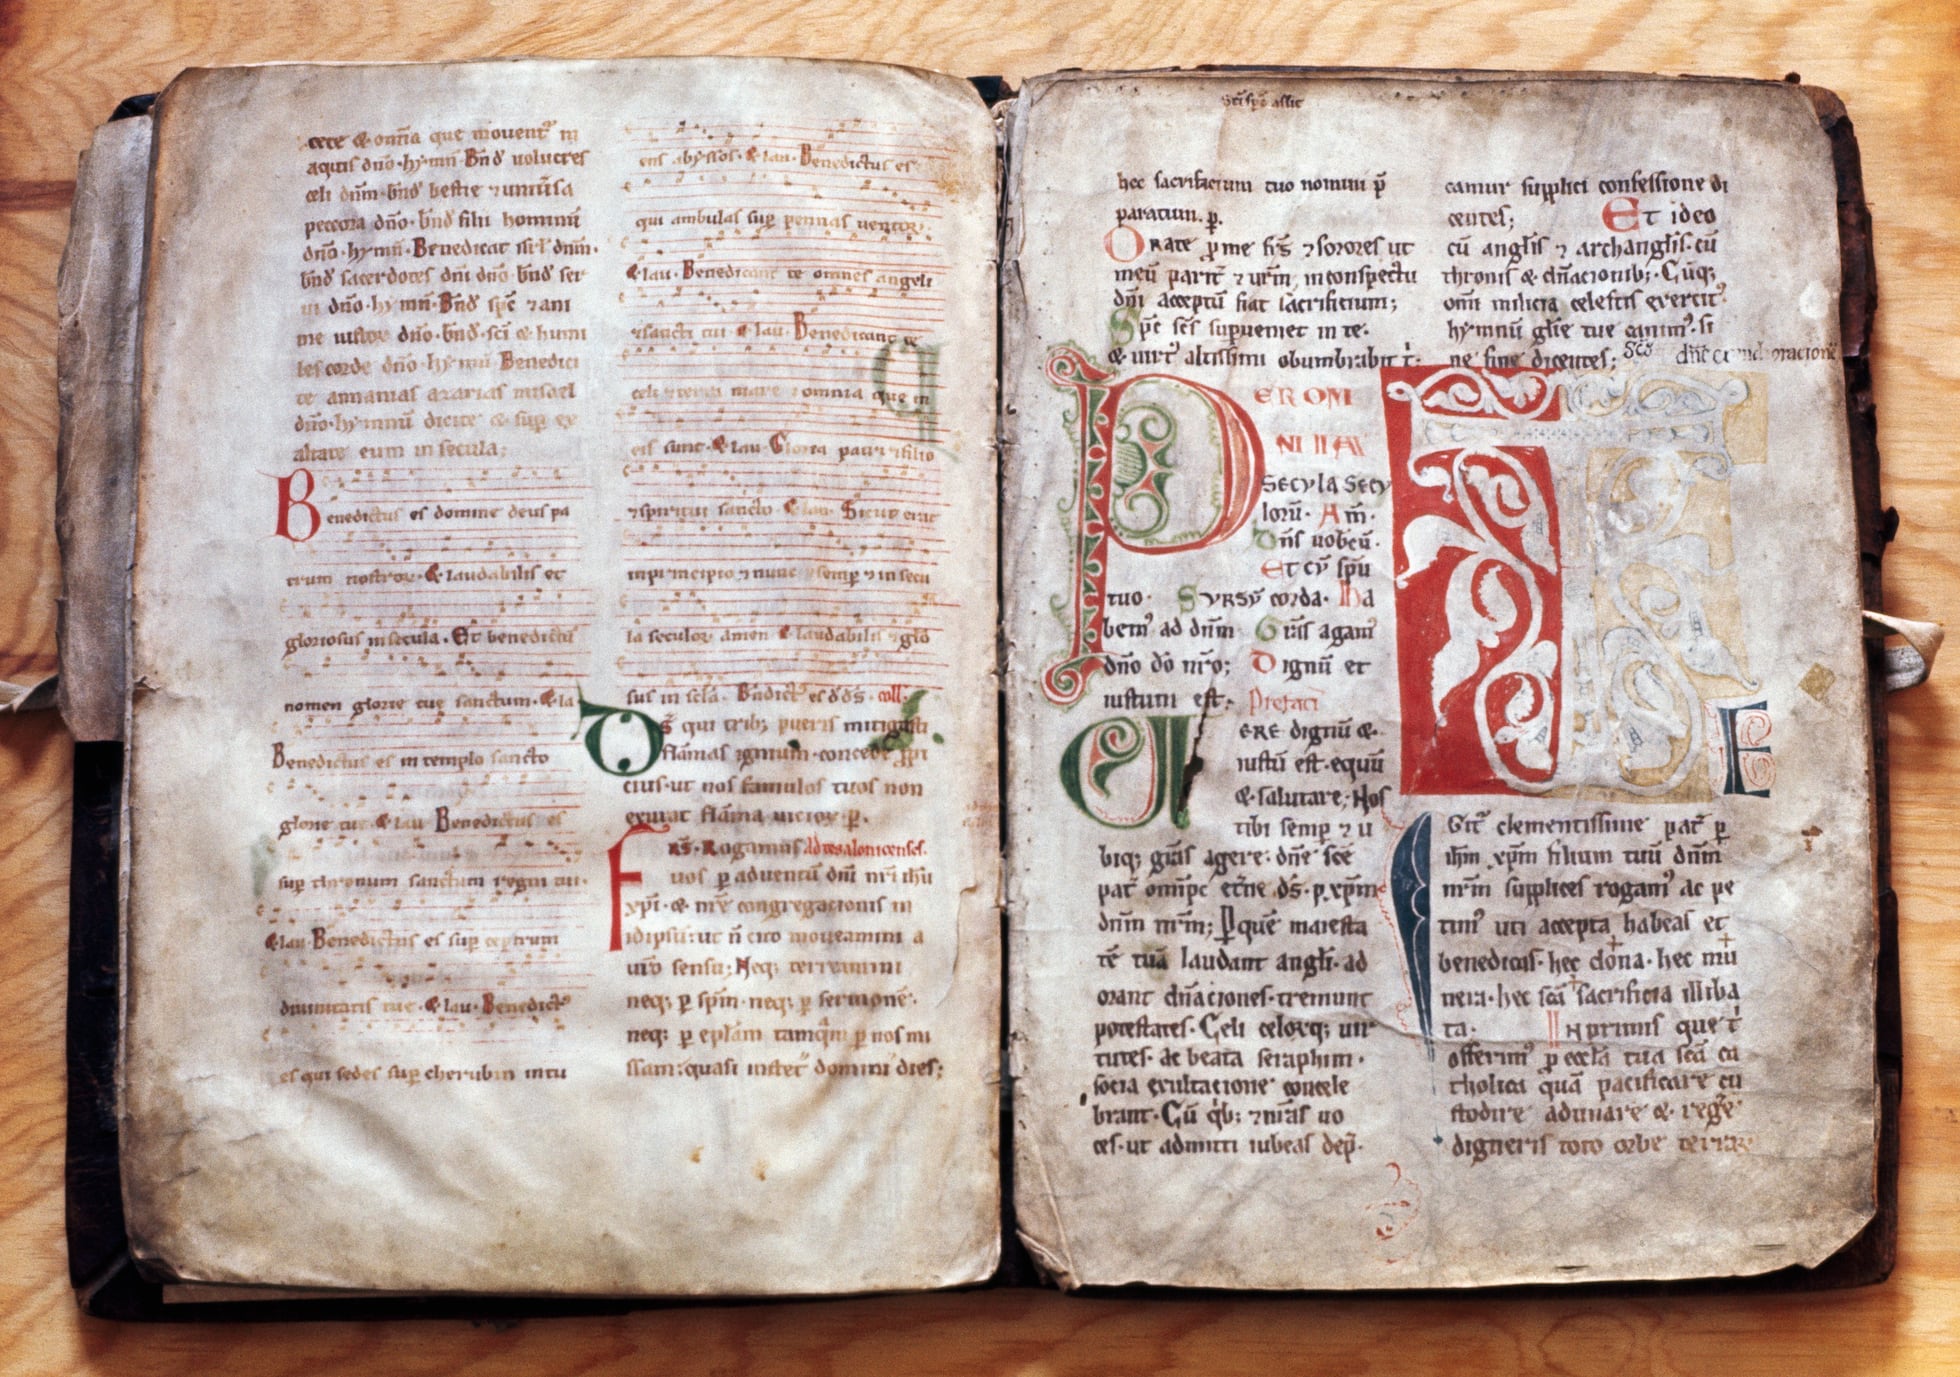 cete & om̄a que mouent᷒ in
aquis dn̄o·hymn̄ Bn̄d̄ uolucres
celi dn̄m·bn̄d̄ bestie ⁊ uniūsa
peccora dn̄o·bn̄d̄ filii hominū
dn̄o·hymn̄·Benedicat isr̄l dn̄m·
bn̄d̄ sacerdotes dn̄i dn̄o·bn̄d̄ ser
ui dn̄o·hymn̄·Bn̄d̄ sp̄c ⁊ ani
me iustoꝝ dn̄o·bn̄d̄·sc̄i & humi
les corde dn̄o·hymnū Benedici
te annanias azarias misael
dn̄o·hymnū dicite & suꝑ ex
altate eum in secula;
Benedictus es domine deus pa
trum nostroꝝ·& laudabilis et
gloriosus in secula·Et benedictū
nomen glorie tue sanctum·& la
Benedictus es in templo sancto
glorie tue·& lau Benedictus es
suꝑ thronum sanctum regni tui·
& lau·Benedictus es suꝑ ceptrum
diuinitatis tue·& lau·Benedict᷒
es qui sedes suꝑ cherubin intu
ens abyssos·& lau·Benedictus es
qui ambulas suꝑ pennas uentoꝝ·
& lau·Benedicant te omnes angeli
⁊ sancti tui & lau·Benedicant te
celi ⁊ terra mare ⁊ omnia que in
eis sunt·& lau·Gloria patri ⁊ filio
⁊ spiritui sancto·& lau·Sicut erat
in principio ⁊ nunc ⁊ semꝑ ⁊ in secu
la seculoꝝ amen & laudabilis ⁊ glo
sus in scl̄a· Bn̄dict᷒ es d̄·d̄s̄· coll·
Ds̄ qui trib; pueris mitigasti
flāmas ignium·concede ꝓpi
cius·ut nos famulos tuos non
exurat flāma uicioꝝ·ꝑ·
Frs̄·Rogamus Ad tesalonicenses·
uos ꝑ aduentū dn̄i nr̄i ihū
xp̄i·& nr̄e congregacionis in
idipsū:ut n̄ cito moueamini a
uro sensu;Neq; terreamini
neq; ꝑ sp̄m·neq; ꝑ sermonē·
neq; ꝑ epl̄am tamq̄m ꝑ nos mi
ssam:quasi instet domini dies;
hec sacrificium tuo nomini p̄
paratum·ꝑ·
Orate ꝓ me frs̄ ⁊ sorores ut
meū parit᷒ ⁊ ur̄m, in conspectu
dn̄i acceptū fiat sacrificium;
Sp̄c sc̄s supueniet in te·
& uirt᷒ altissimi obumbrabit t᷒·
PER OM
NIIA
secula secu
lorū· Am̄·
Dn̄s uobcū·
Et cū sp̄u
tuo· Sursū corda· Ha
bem᷒ ad dn̄m· Gr̄as agam᷒
dn̄o dō nr̄o; Dignū et
iustum est· Prefaci
UERE dignū &
iustū est·equū
& salutare;Nos
tibi semꝑ ⁊ u
biq; gr̄as agere:dn̄e sc̄e
pat᷒ omp̄c et̄ne d̄s·ꝑ xp̄m
dn̄m nr̄m; Ꝑ quē maiesta
tē tuā laudant angl̄i·ad
orant dn̄aciones·tremunt
potestates·Celi celorūq; uir
tutes·ac beata seraphim·
socia exultacione concele
brant·Cū q̄b; ⁊ nr̄as uo
ces·ut admitti iubeas dep̄·
camur supplici confessione di
centes; Et ideo
cū angl̄is ⁊ archangl̄is·cū
thronis & dn̄acionib;·Cūq;
omi milicia celestis exercit᷒
hymnū gl̄ie tue canim᷒·si
ne fine dicentes; Sc̄s
TE
Git᷒ clementissime pat᷒ ꝑ
ihm̄ xp̄m filium tuū dn̄m
nr̄m supplices rogam᷒ ac pe
tim᷒ uti accepta habeas et
benedicas·hec dona·hec mu
nera·hec sc̄a sacrificia illiba
ta· IN primis que t᷒
offerim᷒ ꝓ eccl̄a tua sc̄a ca
tholica quā pacificare cu
stodire adunare & regē
digneris toto orbe terraꝝ